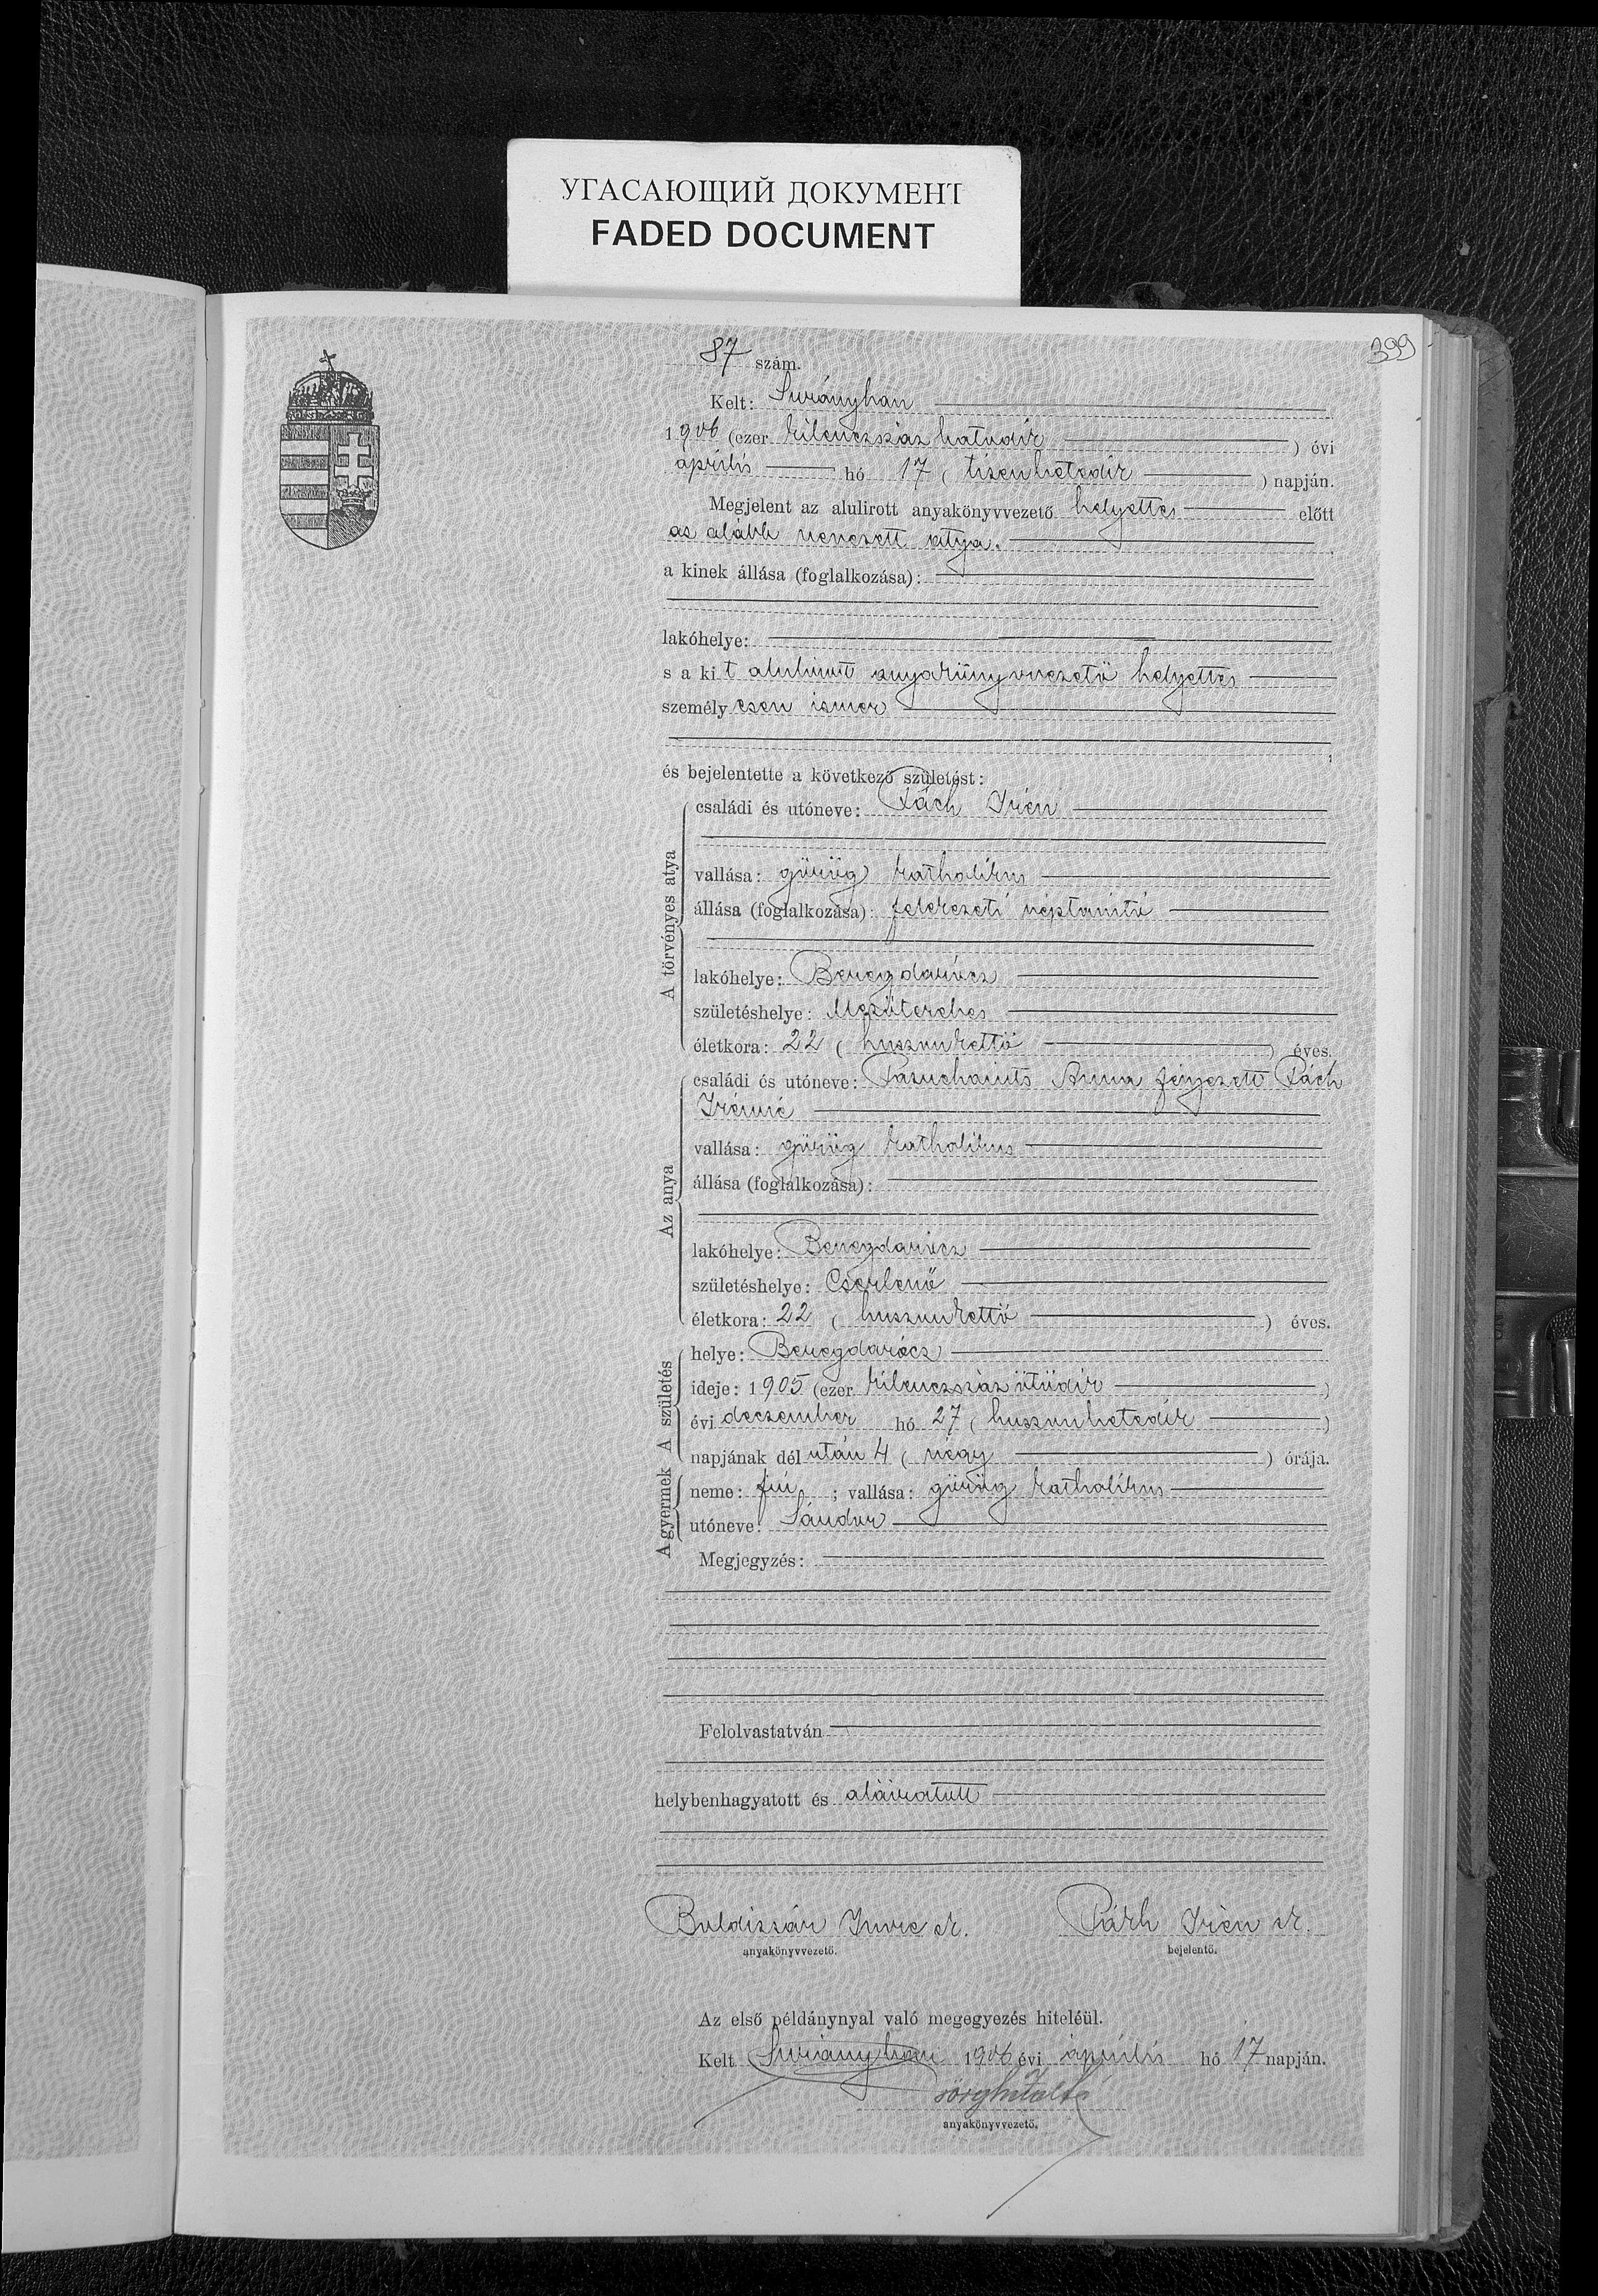 УГАСАЮЩИЙ ДОКУМЕНТ
FADED DOCUMENT
399
87 szám.
Kelt: Surányban
1906 (ezer kilenczszáz hatodik ) évi
április hó 17 ( tizenhetedik ) napján.
Megjelent az alulirott anyakönyvvezető helyettes előtt
az alább nevezett atya.
a kinek állása (foglalkozása):
lakóhelye:
s a kit alulirott anyakönyvvezető helyettes
személyesen ismer
és bejelentette a következő születést:
A törvényes atya
családi és utóneve: Pách Irén
vallása: görög katholikus
állása (foglalkozása): felekezeti néptanító
lakóhelye: Beregdarócz
születéshelye: Mezőterebes
életkora: 22 ( huszonkettő ) éves.
Az anya
családi és utóneve: Anna férjezett Pách
Irénné
vallása: görög katholikus
állása (foglalkozása):
lakóhelye: Beregdarócz
születéshelye: Cserlenő
életkora: 22 ( huszonkettő ) éves.
A születés
helye: Beregdarócz
ideje: 1905 (ezer kilenczszáz ötödik )
évi deczember hó 27 ( huszonhetedik )
napjának délután 4 ( négy ) órája.
A gyermek
neme: fiú ; vallása: görög katholikus
utóneve: Sándor
Megjegyzés:
Felolvastatván
helybenhagyatott és aláiratott
Boldizsár Imre sk. Pách Irén sk.
anyakönyvvezető. bejelentő.
Az első példánynyal való megegyezés hiteléül.
Kelt Surányban 1906 évi április hó 17 napján.
anyakönyvvezető.